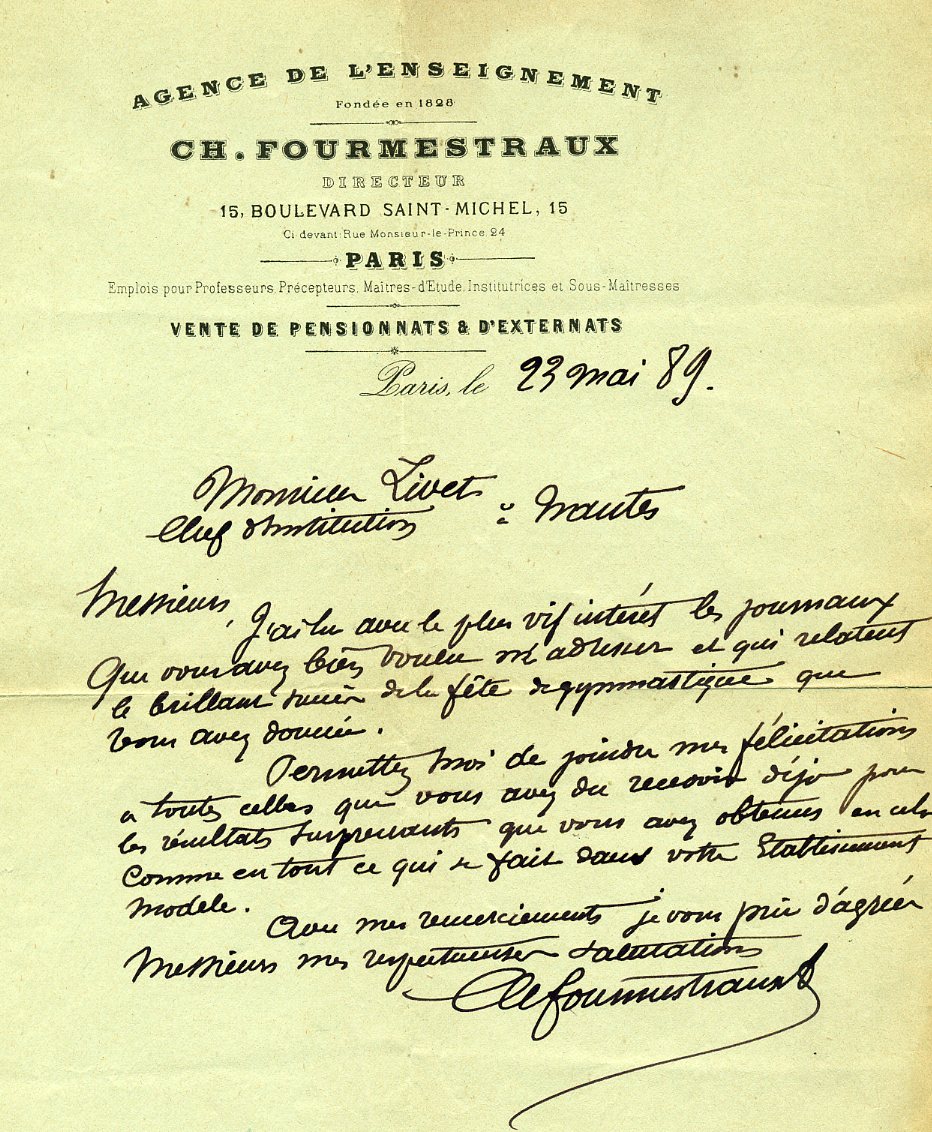 AGENCE DE L'ENSEIGNEMENT
Fondée en 1828
CH. FOURMESTRAUX
DIRECTEUR
15, BOULEVARD SAINT-MICHEL, 15
Ci devant: Rue Monsieur-le-Prince, 24
PARIS
Emplois pour Professeurs, Précepteurs, Maîtres-d'Etude, Institutrices et Sous-Maîtresses
VENTE DE PENSIONNATS & D'EXTERNATS
Paris, le 23 mai 89.
Monsieur Livet
Chef d'Institution à Nantes
Messieurs,
J'ai lu avec le plus vif intérêt les journaux
que vous avez bien voulu m'adresser et qui relatent
le brillant succès de la fête de gymnastique que
vous avez donnée.
Permettez moi de joindre mes félicitations
a toutes celles que vous avez du recevoir déjà pour
les résultats surprenants que vous avez obtenus en cela
comme en tout ce qui se fait dans votre Etablissement
modèle.
Avec mes remerciements je vous prie d'agréer
Messieurs mes respectueuses salutations
Ch Fourmestraux